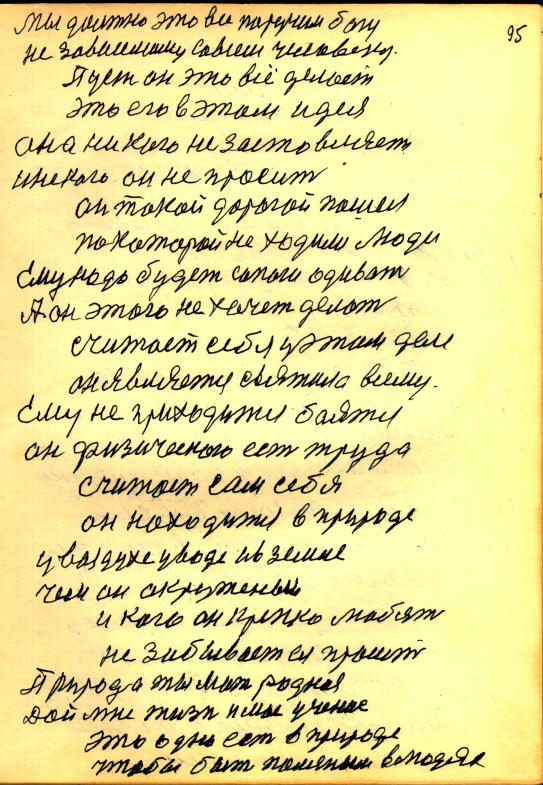 95
Мы должно это все поручим богу
не зависемому совсем человеку.
Пуст он это всё делает
это его в этом идея
она никого не заставляет
никого он не просит
он такой дорогой пошел
по которой не ходили люди
Ему надо будет сапоги одиват
А он этого не хочет делат
считает себя у этом деле
он является всему.
Ему не приходится боятся
он физического ест труда
считает сам себя
он находится в природе
у воздухе у воде из земле
чем он окруженый
и кого он крепко любят
не забывается просит
Природа ты мат родная
Дай мне жизн и мае учение
это одно ест в природе
чтобы быт в людях